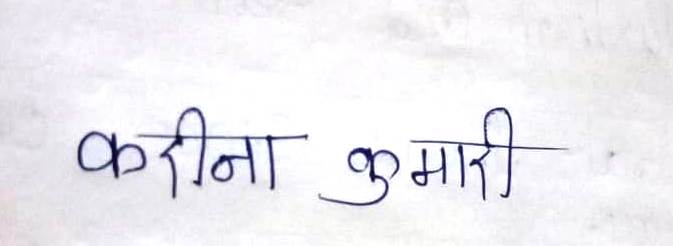 करीना कुमारी